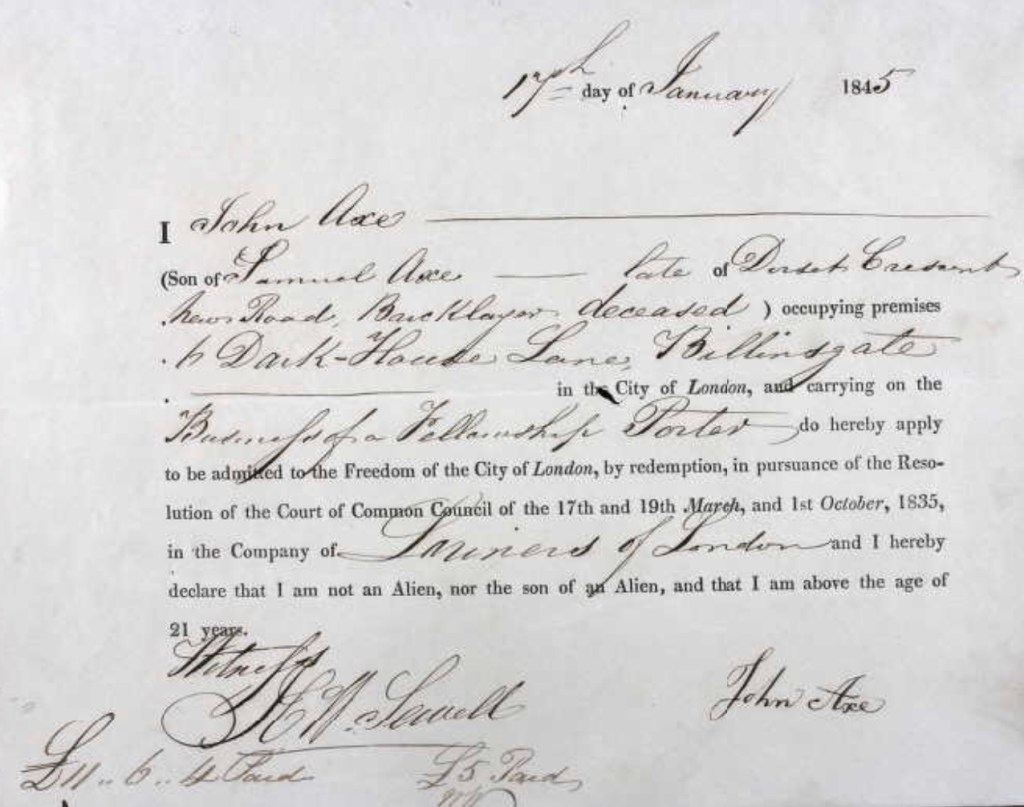 17th day of January 1845
I John Axe
(Son of Samuel Axe late of Dorset Crescent
New Road, Bricklayer deceased ) occupying premises
6 Dark-House Lane, Billinsgate
in the City of London, and carrying on the
Business of a Fellowship Porter do hereby apply
to be admitted to the Freedom of the City of London, by redemption, in pursuance of the Reso-
lution of the Court of Common Council of the 17th and 19th March, and 1st October, 1835,
in the Company of Loriners of London and I hereby
declare that I am not an Alien, nor the son of an Alien, and that I am above the age of
21 years.
Witness
John Axe
H W. Sewell
£11..6..4 Paid £5 Paid